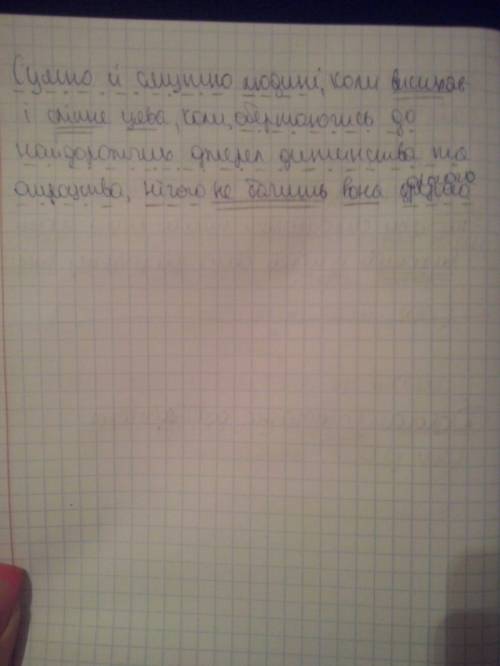 Сумно й смутно людині, коли висихає
і сліпне уява, коли, обертаючись до
найдорожчих джерел дитинства та
отроцтва, нічого не бачить вона